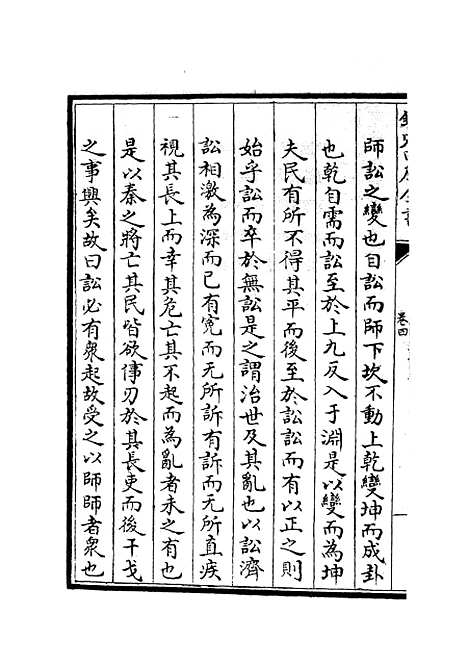 欽定四庫全書
卷四
師訟之變也自訟而師下坎不動上乾變坤而成卦
也乾自需而訟至於上九反入于淵是以變而為坤
夫民有所不得其平而後至於訟訟而有以正之則
始乎訟而卒於無訟是之謂治世及其亂也以訟濟
訟相激為深而已有寃而无所訴有訴而无所直疾
視其長上而幸其危亡其不起而為亂者未之有也
是以秦之將亡其民皆欲倳刃於其長吏而後干戈
之事興矣故曰訟必有衆起故受之以師師者衆也